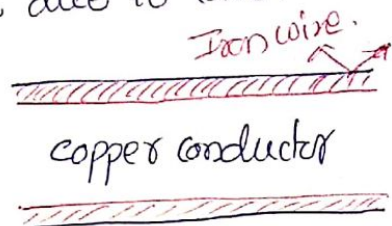 due to
Iron wire.
copper conductor